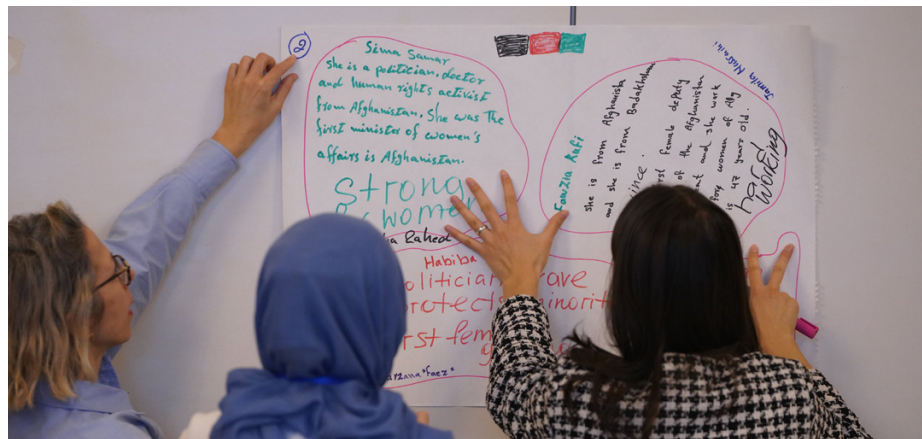 2
Sima Samar
She is a politician, doctor
and human rights activist
from Afghanistan. She was the
first minister of women's
affairs is Afghanistan.
Strong
women
Rahed
Jamila
Fawzia Kufi
she is from Afghanista
and she is from Badakhshan
ince.
rst female deputy
of the Afghanistan
and she work
for women of Afg
is 47 years old.
hard
working
Habiba
olitician rave
rotects minorit
rst fem